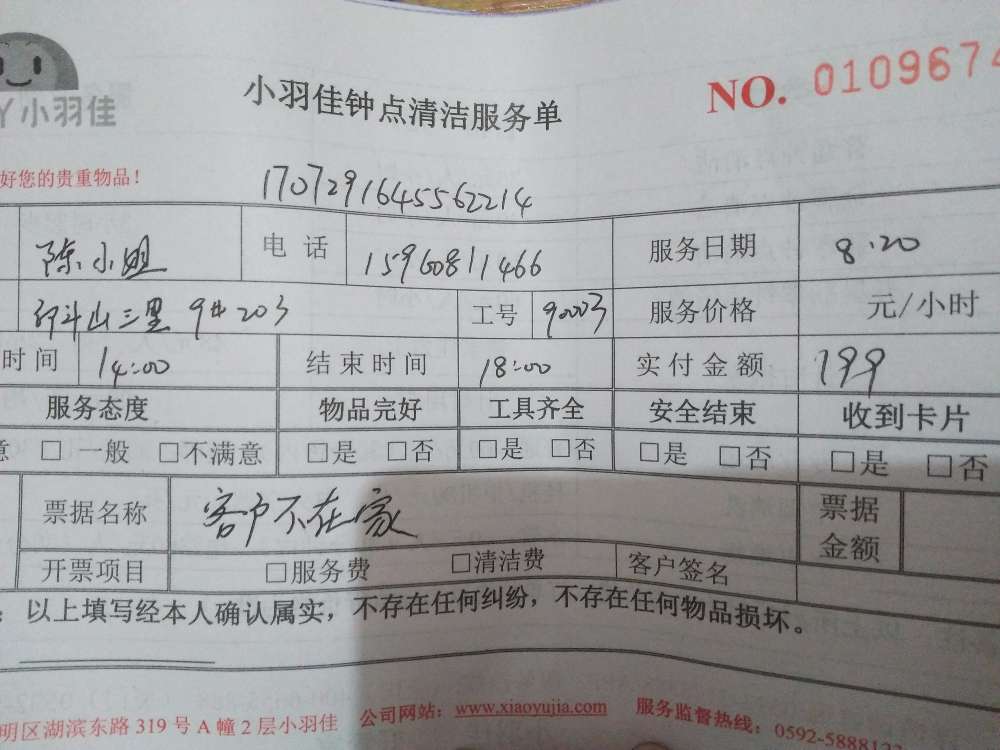 小羽佳
小羽佳钟点清洁服务单
NO. 0109674
好您的贵重物品！
1707291645562214
陈小姐 电话 15960811466 服务日期 8.20
斗山三里 9# 203 工号 90003 服务价格 元/小时
时间 14:00 结束时间 18:00 实付金额 199
服务态度 物品完好 工具齐全 安全结束 收到卡片
意 □ 一般 □不满意 □是 □否 □是 □否 □是 □否 □是 □否
票据名称 客户不在家 票据金额
开票项目 □服务费 □清洁费 客户签名
：以上填写经本人确认属实，不存在任何纠纷，不存在任何物品损坏。
明区湖滨东路 319 号 A 幢 2 层小羽佳 公司网站：www.xiaoyujia.com 服务监督热线：0592-5888